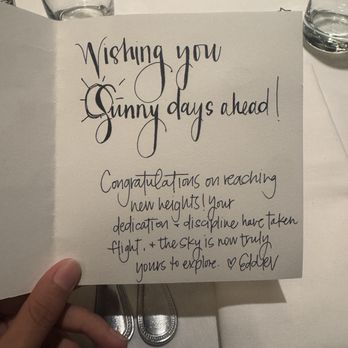 Wishing you
Sunny days ahead!
Congratulations on reaching
new heights! Your
dedication + discipline have taken
flight, + the sky is now truly
yours to explore. ♡